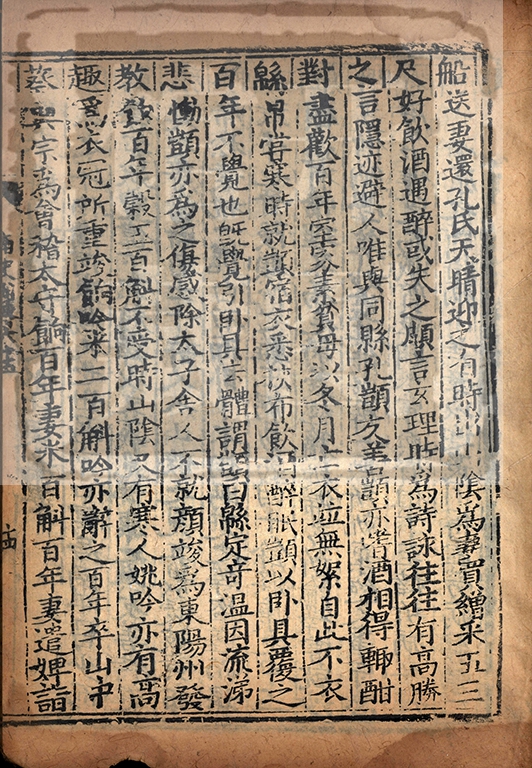 船送妻還孔氏天晴迎之有時出山陰爲妻買繒采五三
尺好飮酒遇醉或失之頗言玄理時爲詩詠往往有高勝
之言隱迹避人唯與同縣孔顗友善顗亦嗜酒相得輒酣
對盡歡百年室家素貧母以冬月亡衣竝無絮自此不衣
緜帛甞寒時就顗宿衣悉裌布飮酒醉眠顗以臥具覆之
百年不覺也旣覺引臥具去體謂顗曰緜定奇温因流涕
悲慟顗亦爲之傷感除太子舍人不就顔竣爲東陽州發
敎餉百年穀五百斛不受時山陰又有寒人姚吟亦有高
趣爲衣冠所重竣餉吟米二百斛吟亦辭之百年卒山中
蔡興宗爲會稽太守餉百年妻米百斛百年妻遣婢詣